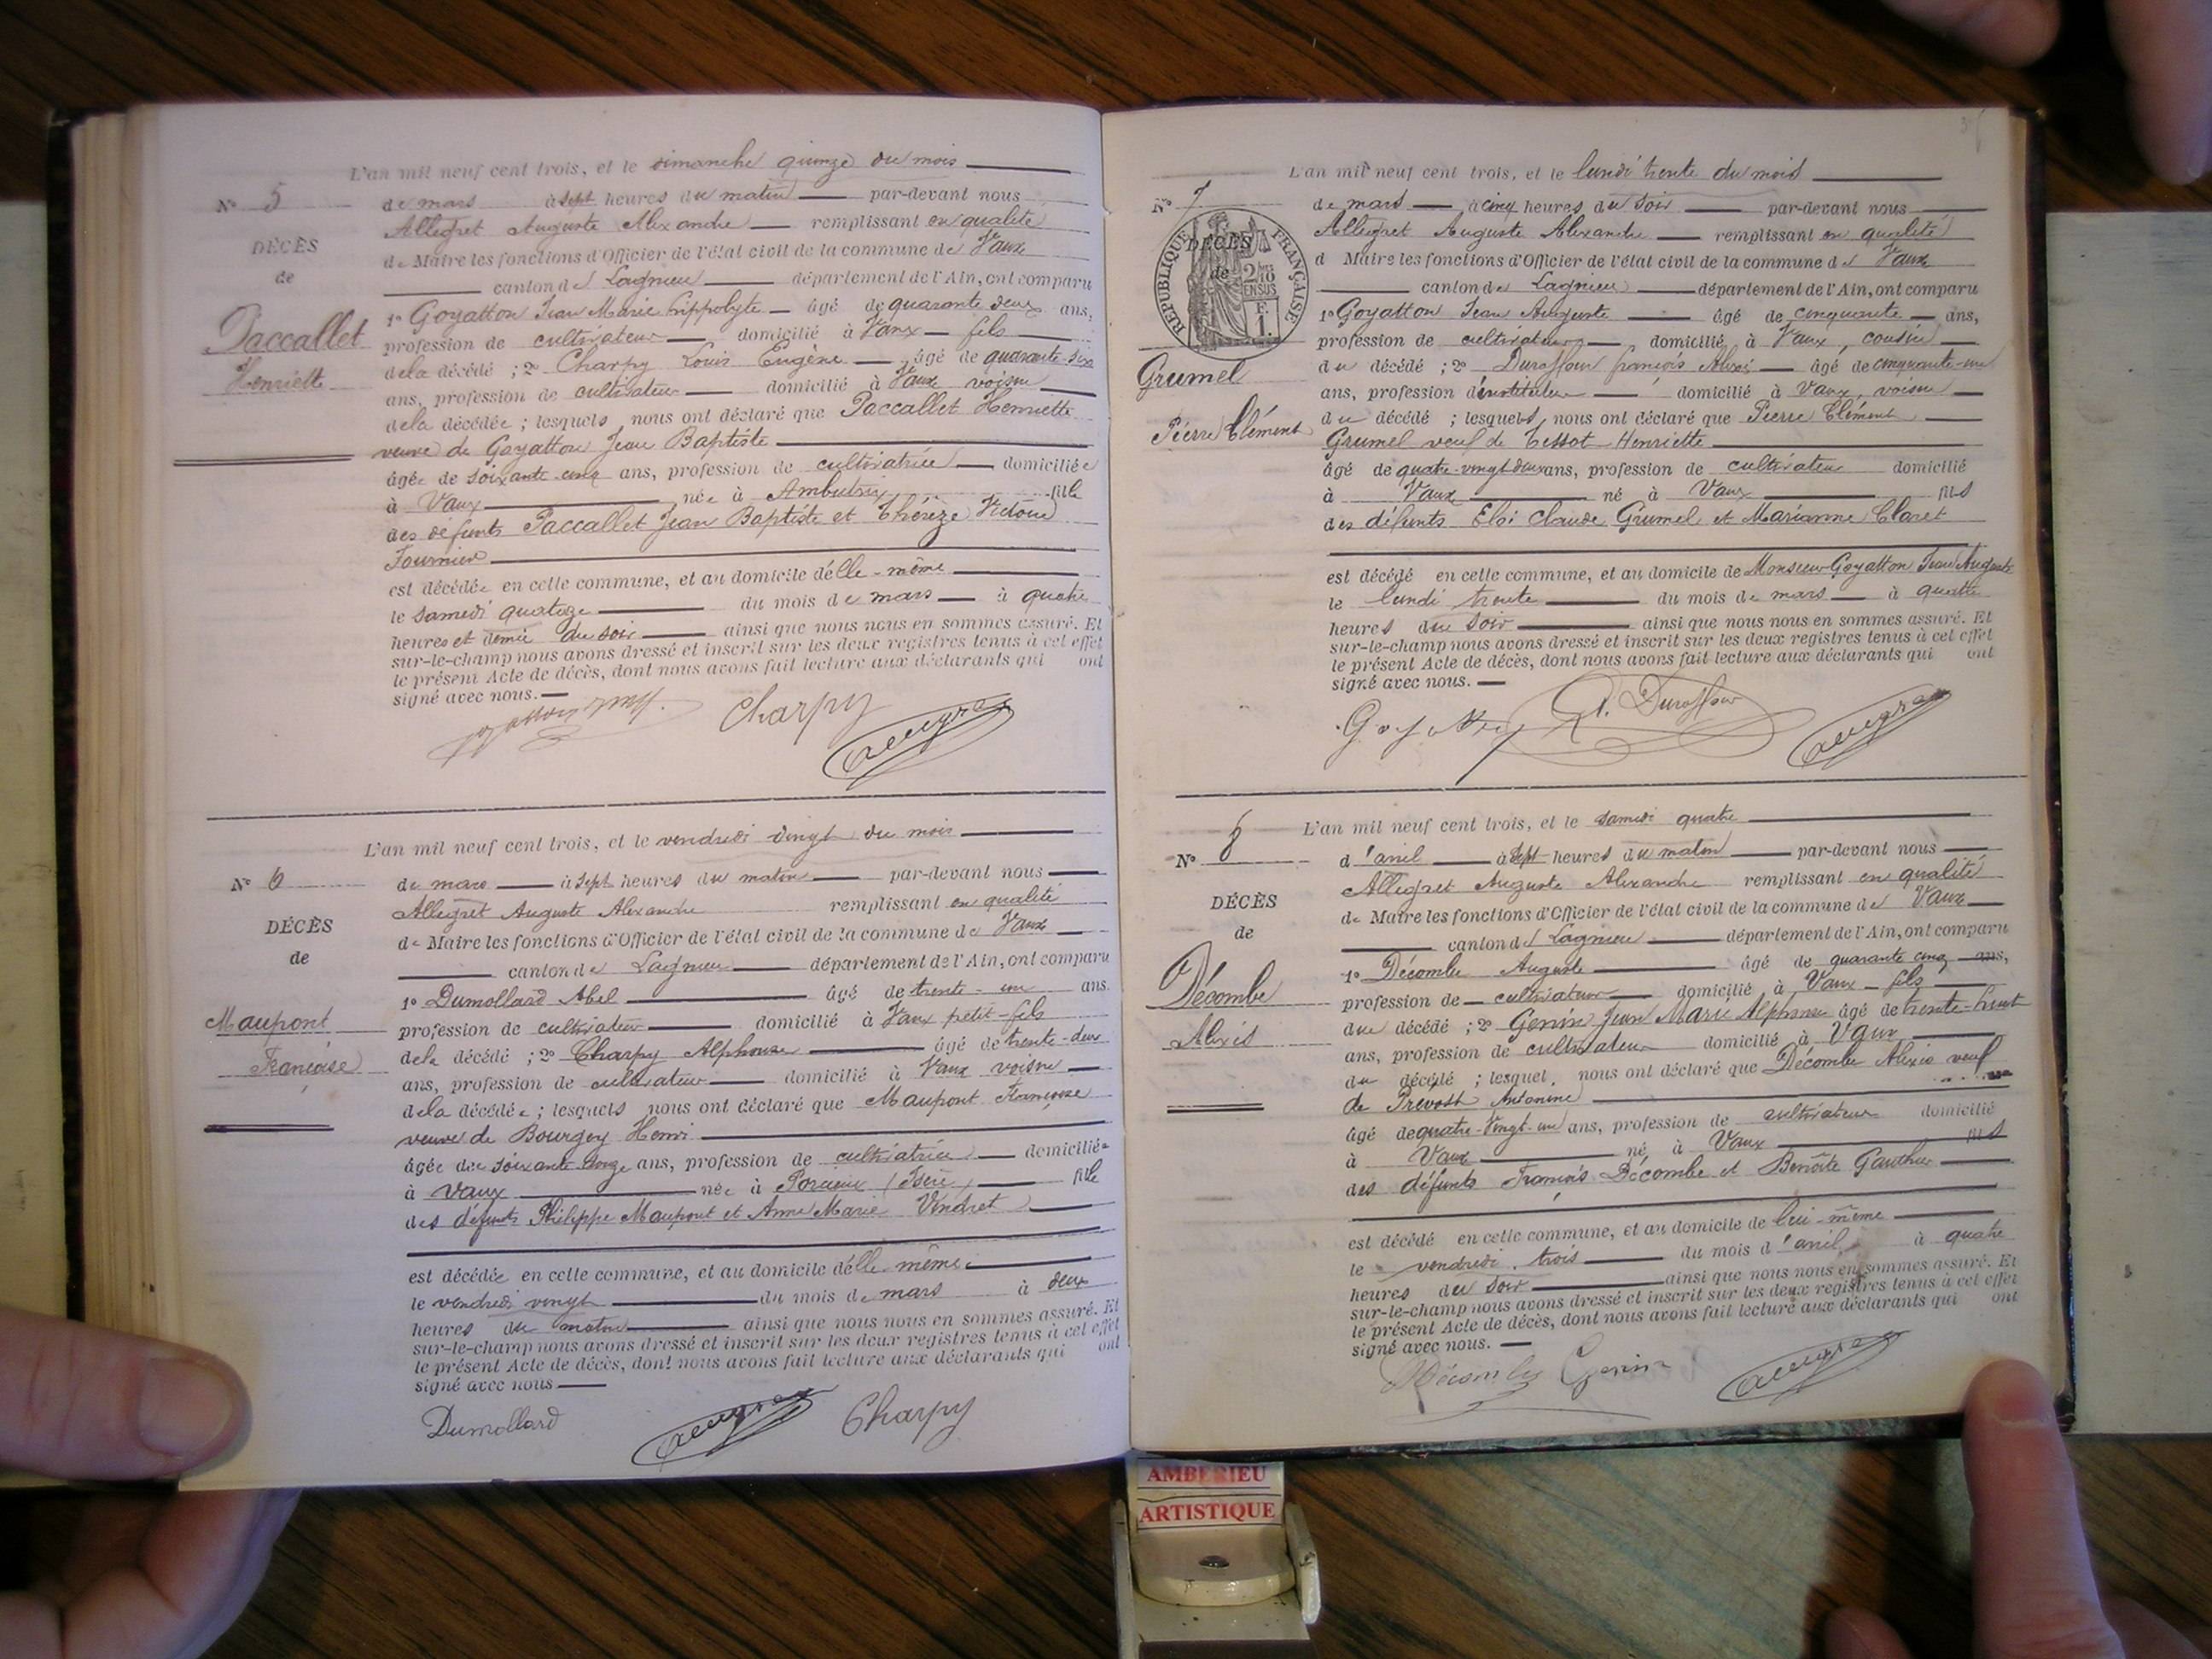 L'an mil neuf cent trois, et le dimanche quinze du mois
N° 5
de mars à sept heures du matin par-devant nous
Allegret Auguste Alexandre remplissant en qualité
DÉCÈS
de Maire les fonctions d'Officier de l'état civil de la commune de Vaux
de
canton de Lagnieu département de l'Ain, ont comparu
1° Goyatton Jean Marie hippolyte âgé de quarante deux ans,
Paccallet
profession de cultivateur domicilié à Vaux fils
Henriette
de la décédé ; 2° Charpy Louis Eugène âgé de quarante-six
ans, profession de cultivateur domicilié à Vaux voisin
de la décédée ; lesquels nous ont déclaré que Paccallet Henriette
veuve de Goyatton Jean Baptiste
âgée de soixante-cinq ans, profession de cultivatrice domiciliée
à Vaux née à Ambutrix fille
des défunts Paccallet Jean Baptiste et Thérèze Victoire
Fournier
est décédée en cette commune, et au domicile d'elle-même
le samedi quatorze du mois de mars à quatre
heures et demie du soir ainsi que nous nous en sommes assuré. Et
sur-le-champ nous avons dressé et inscrit sur les deux registres tenus à cet effet
le présent Acte de décès, dont nous avons fait lecture aux déclarants qui ont
signé avec nous.
Charpy
L'an mil neuf cent trois, et le vendredi vingt du mois
N° 6
de mars à sept heures du matin par-devant nous
Allegret Auguste Alexandre remplissant en qualité
DÉCÈS
de Maire les fonctions d'Officier de l'état civil de la commune de Vaux
de
canton de Lagnieu département de l'Ain, ont comparu
1° Dumollard Abel âgé de trente-un ans.
Maupont
profession de cultivateur domicilié à Vaux petit-fils
Françoise
de la décédé ; 2° Charpy Alphonse âgé de trente-deux
ans, profession de cultivateur domicilié à Vaux voisin
de la décédée ; lesquels nous ont déclaré que Maupont Françoise
veuve de Bourgey Henri
âgée de soixante ans, profession de cultivatrice domiciliée
à Vaux née à Porcieux (Isère) fille
des défunts Philippe Maupont et Anne Marie Vendret
est décédée en cette commune, et au domicile d'elle-même
le vendredi vingt du mois de mars à deux
heures du matin ainsi que nous nous en sommes assuré. Et
sur-le-champ nous avons dressé et inscrit sur les deux registres tenus à cet effet
le présent Acte de décès, dont nous avons fait lecture aux déclarants qui ont
signé avec nous
Dumollard Charpy
L'an mil neuf cent trois, et le lundi trente du mois
N° 7
de mars à cinq heures du soir par-devant nous
Allegret Auguste Alexandre remplissant en qualité
RÉPUBLIQUE FRANÇAISE
DÉCÈS
de
2/10
EN SUS
F.
1.
d Maire les fonctions d'Officier de l'état civil de la commune de Vaux
canton de Lagnieu département de l'Ain, ont comparu
1° Goyatton Jean Auguste âgé de cinquante ans,
profession de cultivateur domicilié à Vaux, cousin
Grumel
du décédé ; 2° Duraffour françois Alexis âgé de cinquante-un
ans, profession d'instituteur domicilié à Vaux, voisin
Pierre Clément
du décédé ; lesquels nous ont déclaré que Pierre Clément
Grumel veuf de Tissot Henriette
âgé de quatre-vingt-deux ans, profession de cultivateur domicilié
à Vaux né à Vaux fils
des défunts Eloi Claude Grumel et Marianne Claret
est décédé en cette commune, et au domicile de Monsieur Goyatton Jean Auguste
le lundi trente du mois de mars à quatre
heures du soir ainsi que nous nous en sommes assuré. Et
sur-le-champ nous avons dressé et inscrit sur les deux registres tenus à cet effet
le présent Acte de décès, dont nous avons fait lecture aux déclarants qui ont
signé avec nous.
Duraffour
L'an mil neuf cent trois, et le samedi quatre
N° 8
d'avril à sept heures du matin par-devant nous
Allegret Auguste Alexandre remplissant en qualité
DÉCÈS
de Maire les fonctions d'Officier de l'état civil de la commune de Vaux
de
canton de Lagnieu département de l'Ain, ont comparu
1° Décombe Auguste âgé de quarante cinq ans,
Décombe
profession de cultivateur domicilié à Vaux fils
Alexis
du décédé ; 2° Genin Jean Marie Alphonse âgé de trente-huit
ans, profession de cultivateur domicilié à Vaux
du décédé ; lesquel. nous ont déclaré que Décombe Alexis veuf
de Prévost Antonine
âgé de quatre-vingt-un ans, profession de cultivateur domicilié
à Vaux né à Vaux fils
des défunts François Décombe et Benoîte Gauthier
est décédé en cette commune, et au domicile de lui-même
le vendredi trois du mois d'avril à quatre
heures du soir ainsi que nous nous en sommes assuré. Et
sur-le-champ nous avons dressé et inscrit sur les deux registres tenus à cet effet
le présent Acte de décès, dont nous avons fait lecture aux déclarants qui ont
signé avec nous.
Décombe Genin
AMBERIEU
ARTISTIQUE